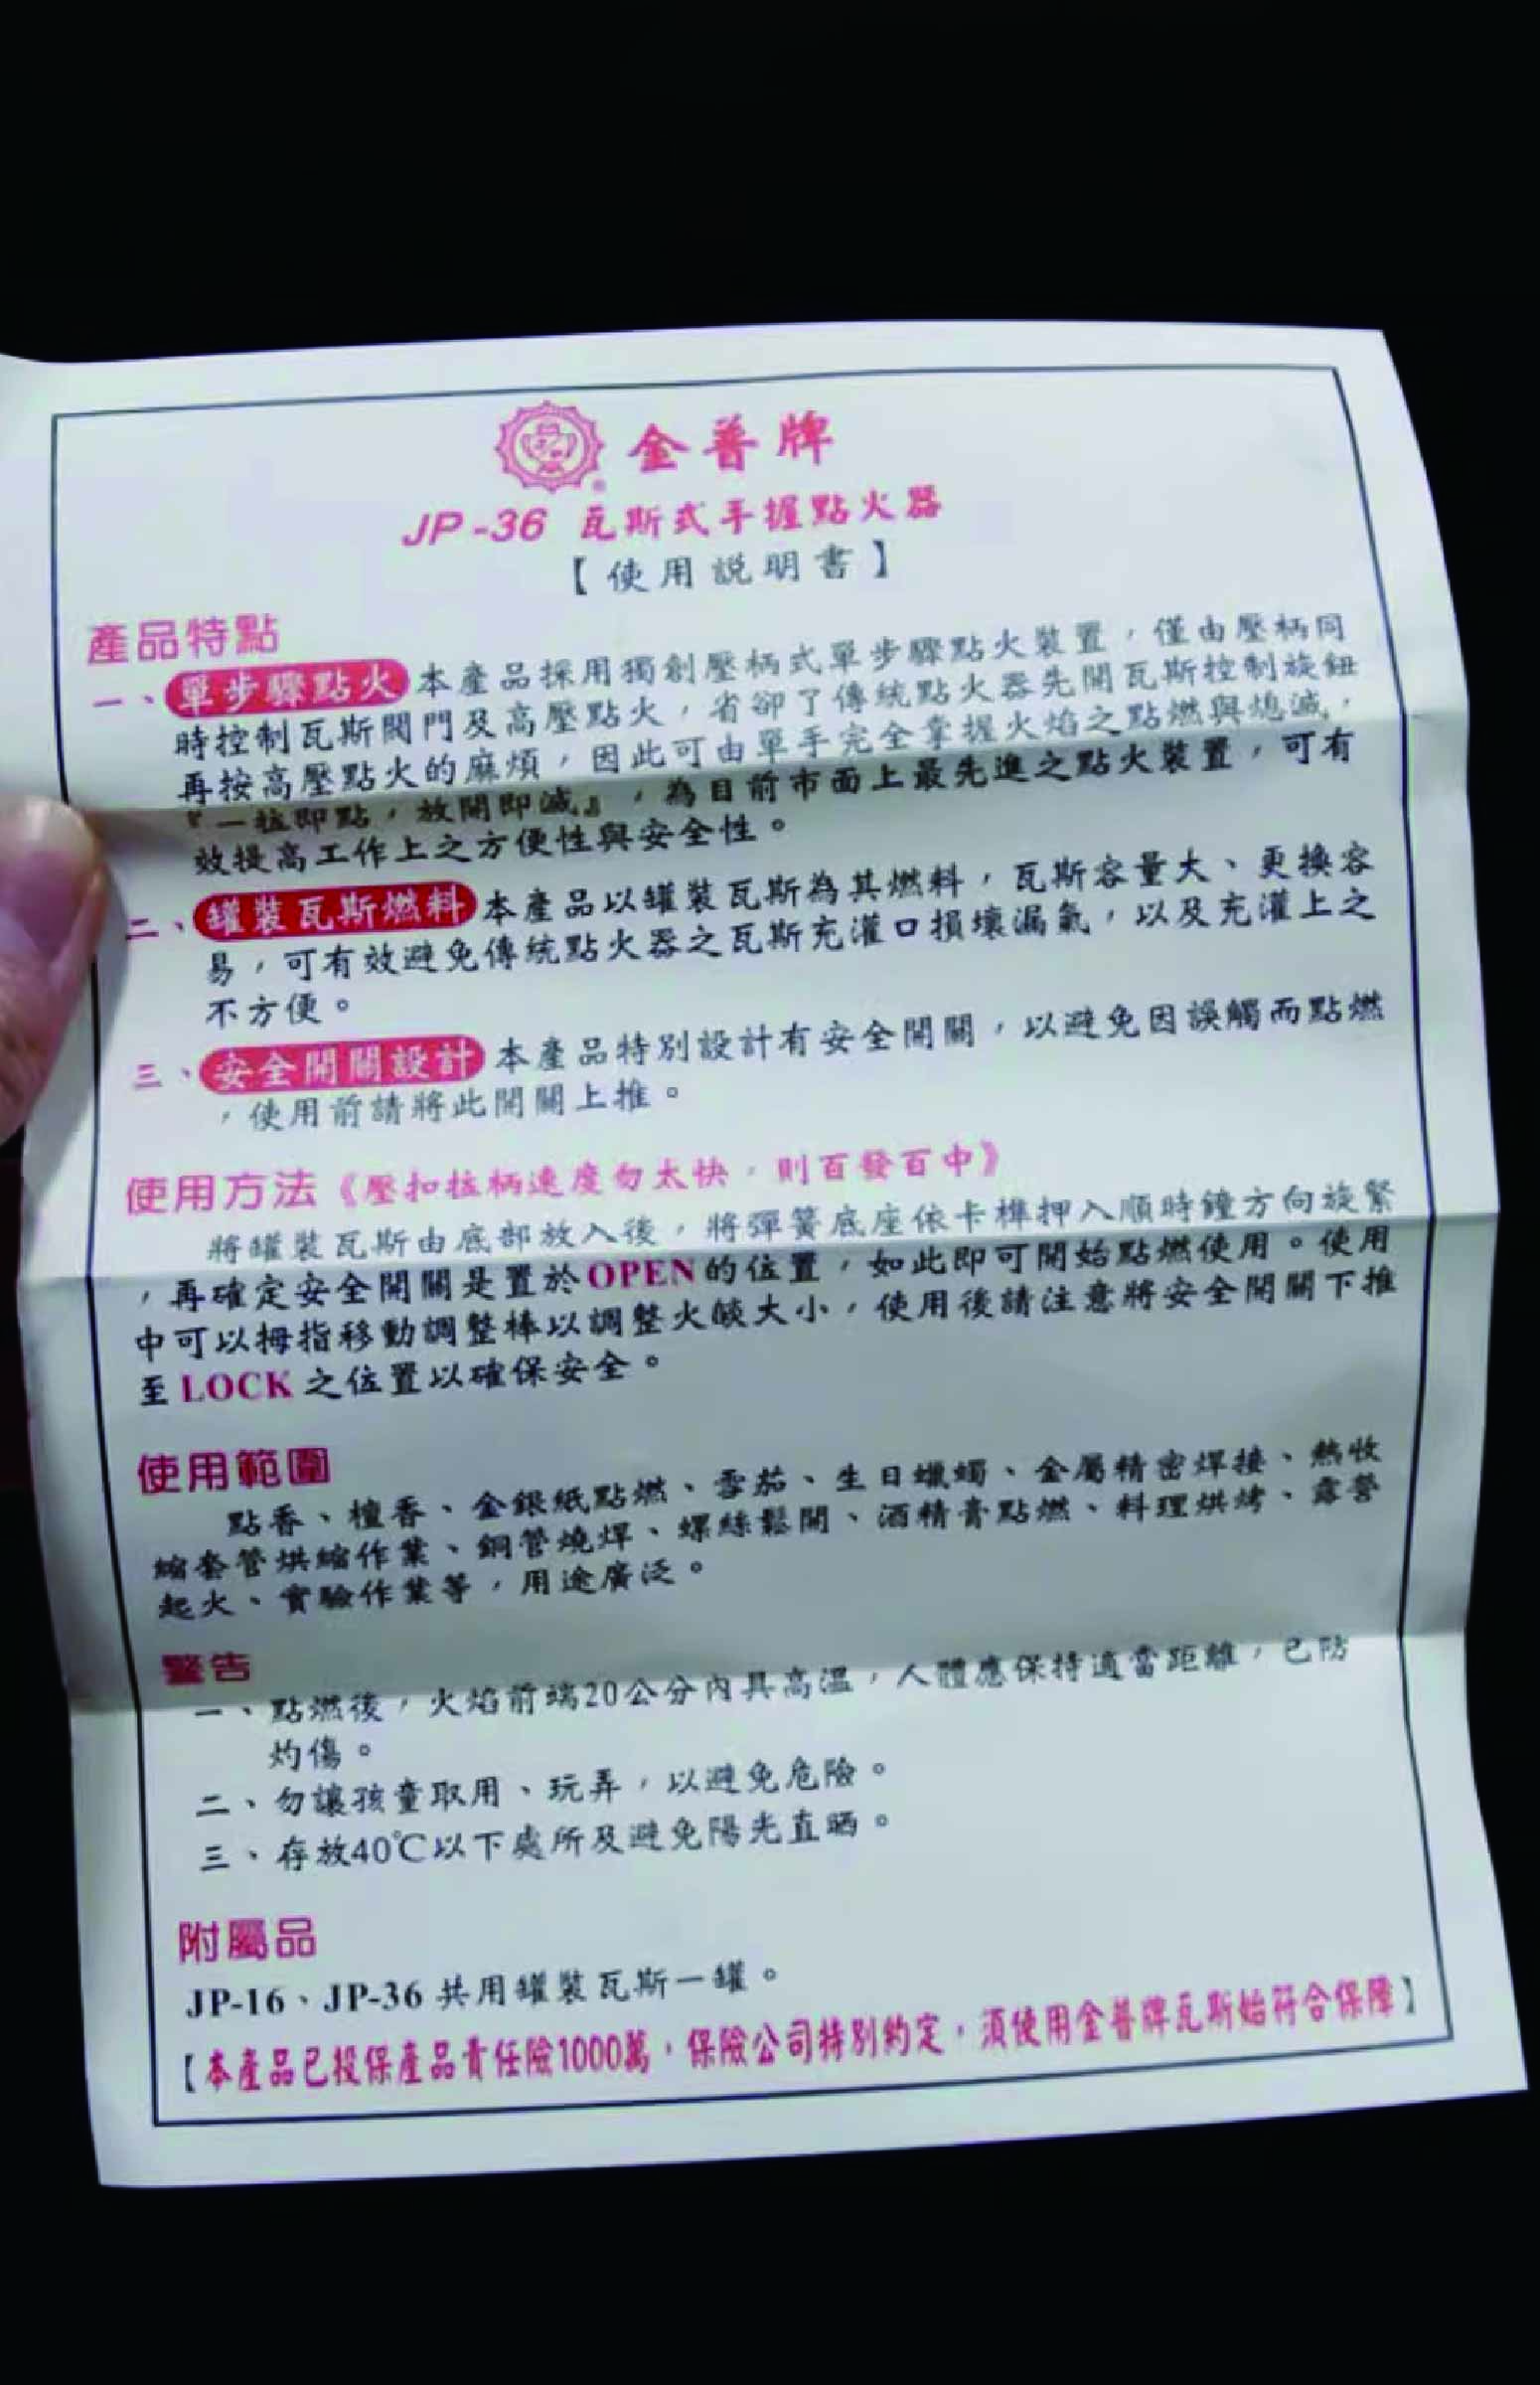 金普牌
JP-36 瓦斯式手握點火器
【使用說明書】
產品特點
一、單步驟點火 本產品採用獨創壓柄式單步驟點火裝置，僅由壓柄同
時控制瓦斯閥門及高壓點火，省卻了傳統點火器先開瓦斯控制旋鈕
再按高壓點火的麻煩，因此可由單手完全掌握火焰之點燃與熄滅，
『一拉即點，放開即滅』，為目前市面上最先進之點火裝置，可有
效提高工作上之方便性與安全性。
二、罐裝瓦斯燃料 本產品以罐裝瓦斯為其燃料，瓦斯容量大、更換容
易，可有效避免傳統點火器之瓦斯充灌口損壞漏氣，以及充灌上之
不方便。
三、安全開關設計 本產品特別設計有安全開關，以避免因誤觸而點燃
，使用前請將此開關上推。
使用方法《壓扣拉柄速度勿太快，則百發百中》
將罐裝瓦斯由底部放入後，將彈簧底座依卡榫押入順時鐘方向旋緊
，再確定安全開關是置於OPEN的位置，如此即可開始點燃使用。使用
中可以拇指移動調整棒以調整火燄大小，使用後請注意將安全開關下推
至LOCK之位置以確保安全。
使用範圍
點香、檀香、金銀紙點燃、雪茄、生日蠟蠋、金屬精密焊接、熱收
縮套管烘縮作業、銅管燒焊、螺絲鬆開、酒精膏點燃、料理烘烤、露營
起火、實驗作業等，用途廣泛。
警告
一、點燃後，火焰前端20公分內具高溫，人體應保持適當距離，已防
灼傷。
二、勿讓孩童取用、玩弄，以避免危險。
三、存放40℃以下處所及避免陽光直晒。
附屬品
JP-16、JP-36 共用罐裝瓦斯一罐。
【本產品已投保產品責任險1000萬，保險公司特別約定，須使用金普牌瓦斯始符合保障】